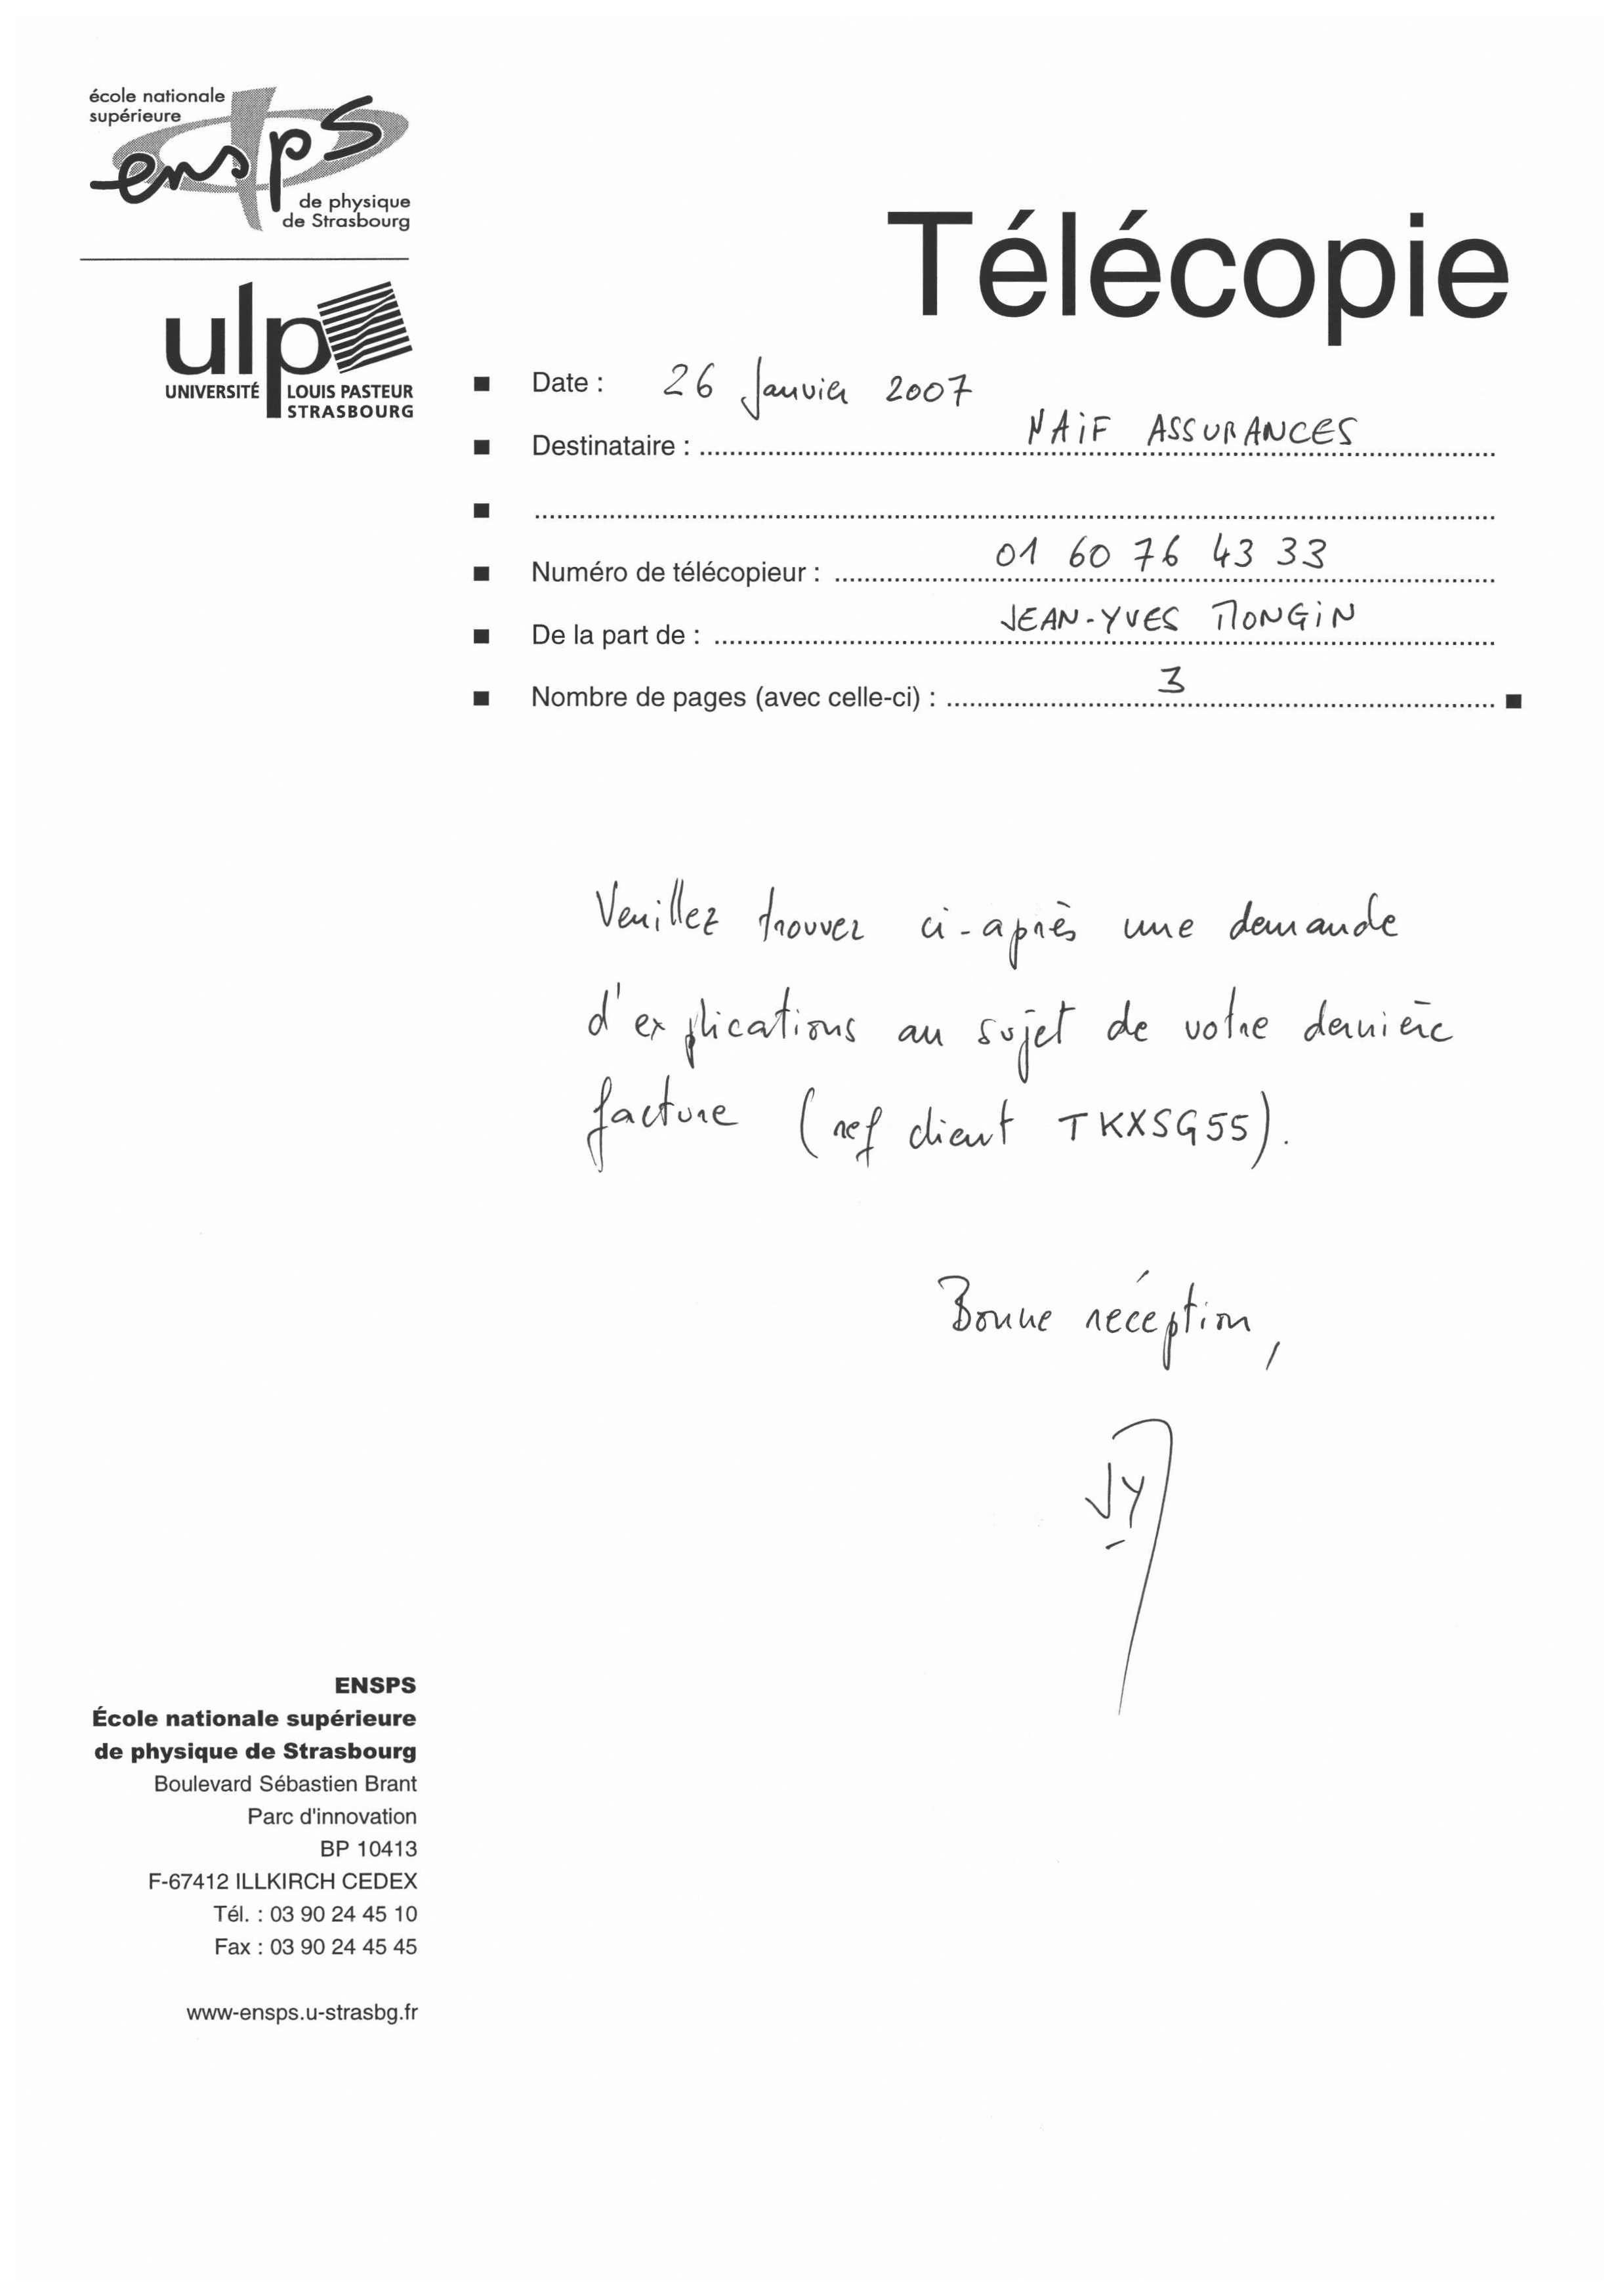 école nationale
supérieure
ensps
de physique
de Strasbourg
ulp
UNIVERSITÉ LOUIS PASTEUR
STRASBOURG
Télécopie
Date : 26 Janvier 2007
Destinataire : MAiF ASSURANCES
Numéro de télécopieur : 01 60 76 43 33
De la part de : JEAN-YVES MONGiN
Nombre de pages (avec celle-ci) : 3
Veuillez trouver ci-après une demande
d'explications au sujet de votre dernière
facture (ref client TKXSG55).
Bonne réception,
JY
ENSPS
École nationale supérieure
de physique de Strasbourg
Boulevard Sébastien Brant
Parc d'innovation
BP 10413
F-67412 ILLKIRCH CEDEX
Tél. : 03 90 24 45 10
Fax : 03 90 24 45 45
www-ensps.u-strasbg.fr